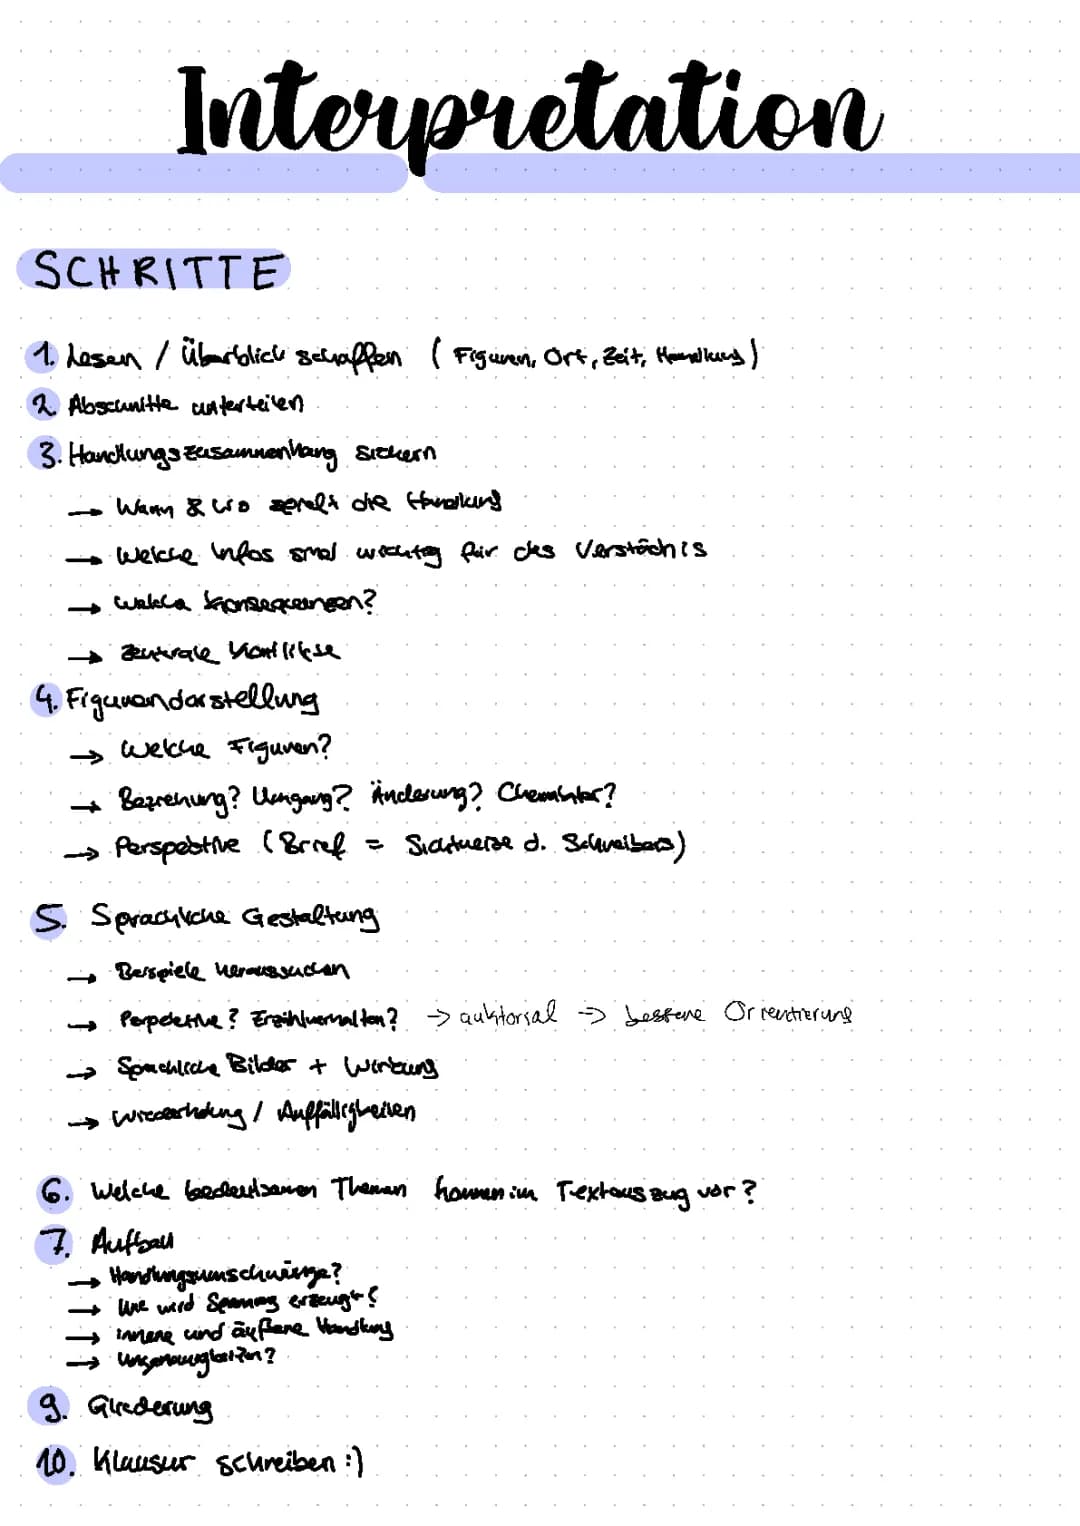 Interpretation
SCHRITTE
1. Lesen / Überblick schaffen ( Figuren, Ort, Zeit, Handlung )
2. Abschnitte unterteilen
3. Handlungszusammenhang sichern
→ Wann & wo spielt die Handlung
→ Welche Infos sind wichtig für das Verstädnis
→ Welche Konsequenzen?
→ Zentrale Konflikte
4. Figurendarstellung
→ Welche Figuren?
→ Beziehung? Umgang? Änderung? Charakter?
→ Perspektive ( Brief = Sichtweise d. Schreibers)
5. Sprachliche Gestaltung
→ Beispiele heraussuchen
→ Perpektive? Erzählverhalten? → auktorial => bessere Orientierung
→ Sprachliche Bilder + Wirkung
→ Wiederholung / Auffälligkeiten
6. Welche bedeutsamen Themen kommen im Textauszug vor?
7. Aufbau
→ Handlungsumschwünge?
→ Wie wird Spannung erzeugt?
→ innere und äußere Handlung
→ Ungenauigkeiten?
9. Gliederung
10. Klausur schreiben :)